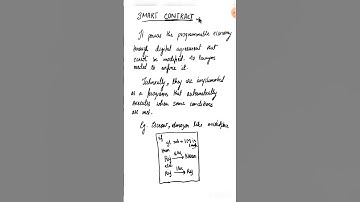 SMART CONTRACT
It powers the programmable economy
through digital agreement that
can't be modified. No lawyers
needed to enforce it.
Technically, they are implemented
as a program that automatically
executes when some conditions
are met.
Eg.
if
then
Raj → Naman
else
Raj → Raj